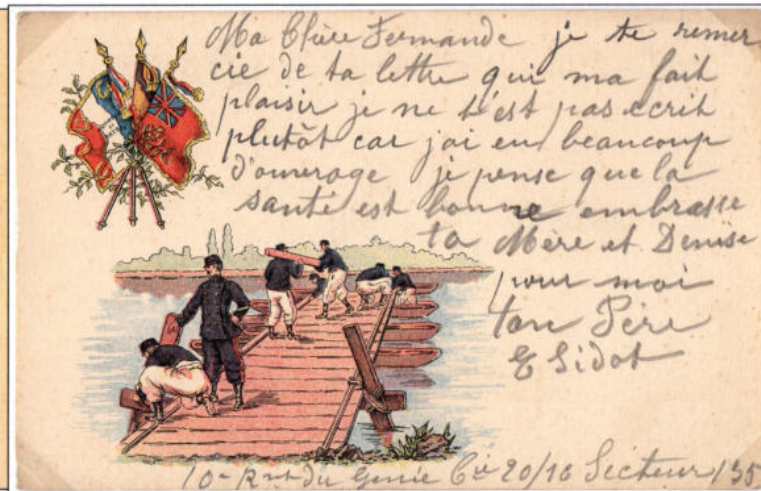 Ma Chère Fernande je te remer
cie de ta lettre qui ma fait
plaisir je ne t'est pas ecrit
plutôt car j'ai eu beaucoup
d'ouverage je pense que la
santé est bonne embrasse
ta Mère et Denise
pour moi
ton Père
E Sidot
10e Rmt du Genie Cie 20/16 Secteur 135